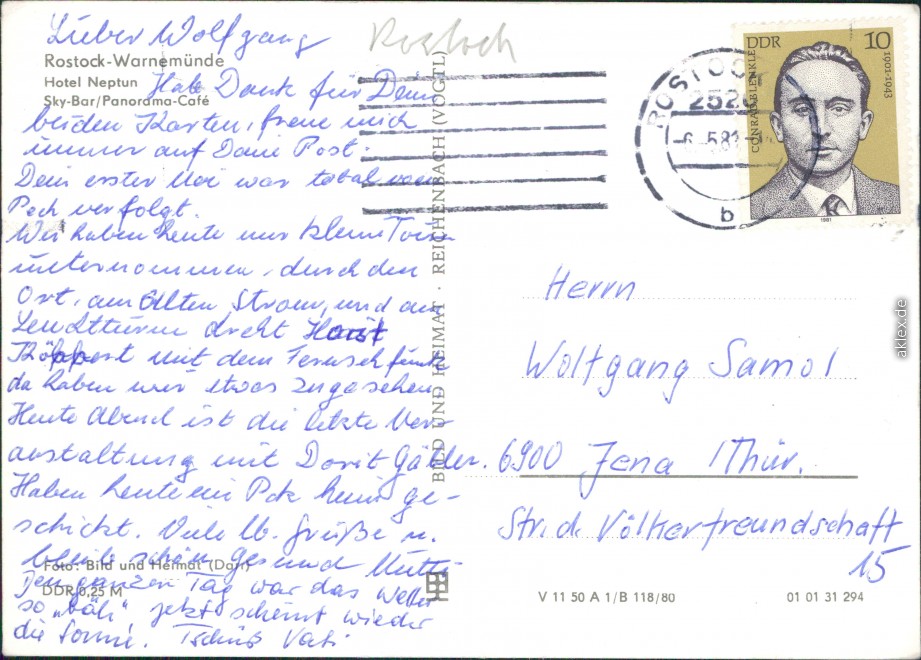 Lieber Wolfgang
Rostock
Rostock-Warnemünde
Hotel Neptun
Sky-Bar/Panorama-Café
Hab Dank für Deine
beiden Karten, freue mich
immer auf Deine Post.
Dein erster Mai war total vom
Pech verfolgt.
Wir haben heute nur kleine Touren
unternommen, durch den
Ort, am Alten Strom, und am
Leuchtturm dreht Horst
Köppert mit dem Fernsehfunk
da haben wir etwas zugesehen
Heute Abend ist die letzte Ver-
anstaltung mit Dorit Gäbler.
Haben heute ein Pck heim ge-
schickt. Viele lb. Grüße u.
bleib schön gesund Mutti
Foto: Bild und Heimat (Darr)
Den ganzen Tag war das Wetter
DDR 0,25 M
so "bäh", jetzt scheint wieder
die Sonne. Tschüß Vati
BILD UND HEIMAT · REICHENBACH (VOGTL)
ROSTOCK
252
-6.-5.81
b
DDR
10
CONRAD BLENKLE
1901-1943
1981
Herrn
Wolfgang Samol
6900 Jena /Thür.
Str. d. Völkerfreundschaft
15
V 11 50 A 1/B 118/80
01 01 31 294
aklex.de